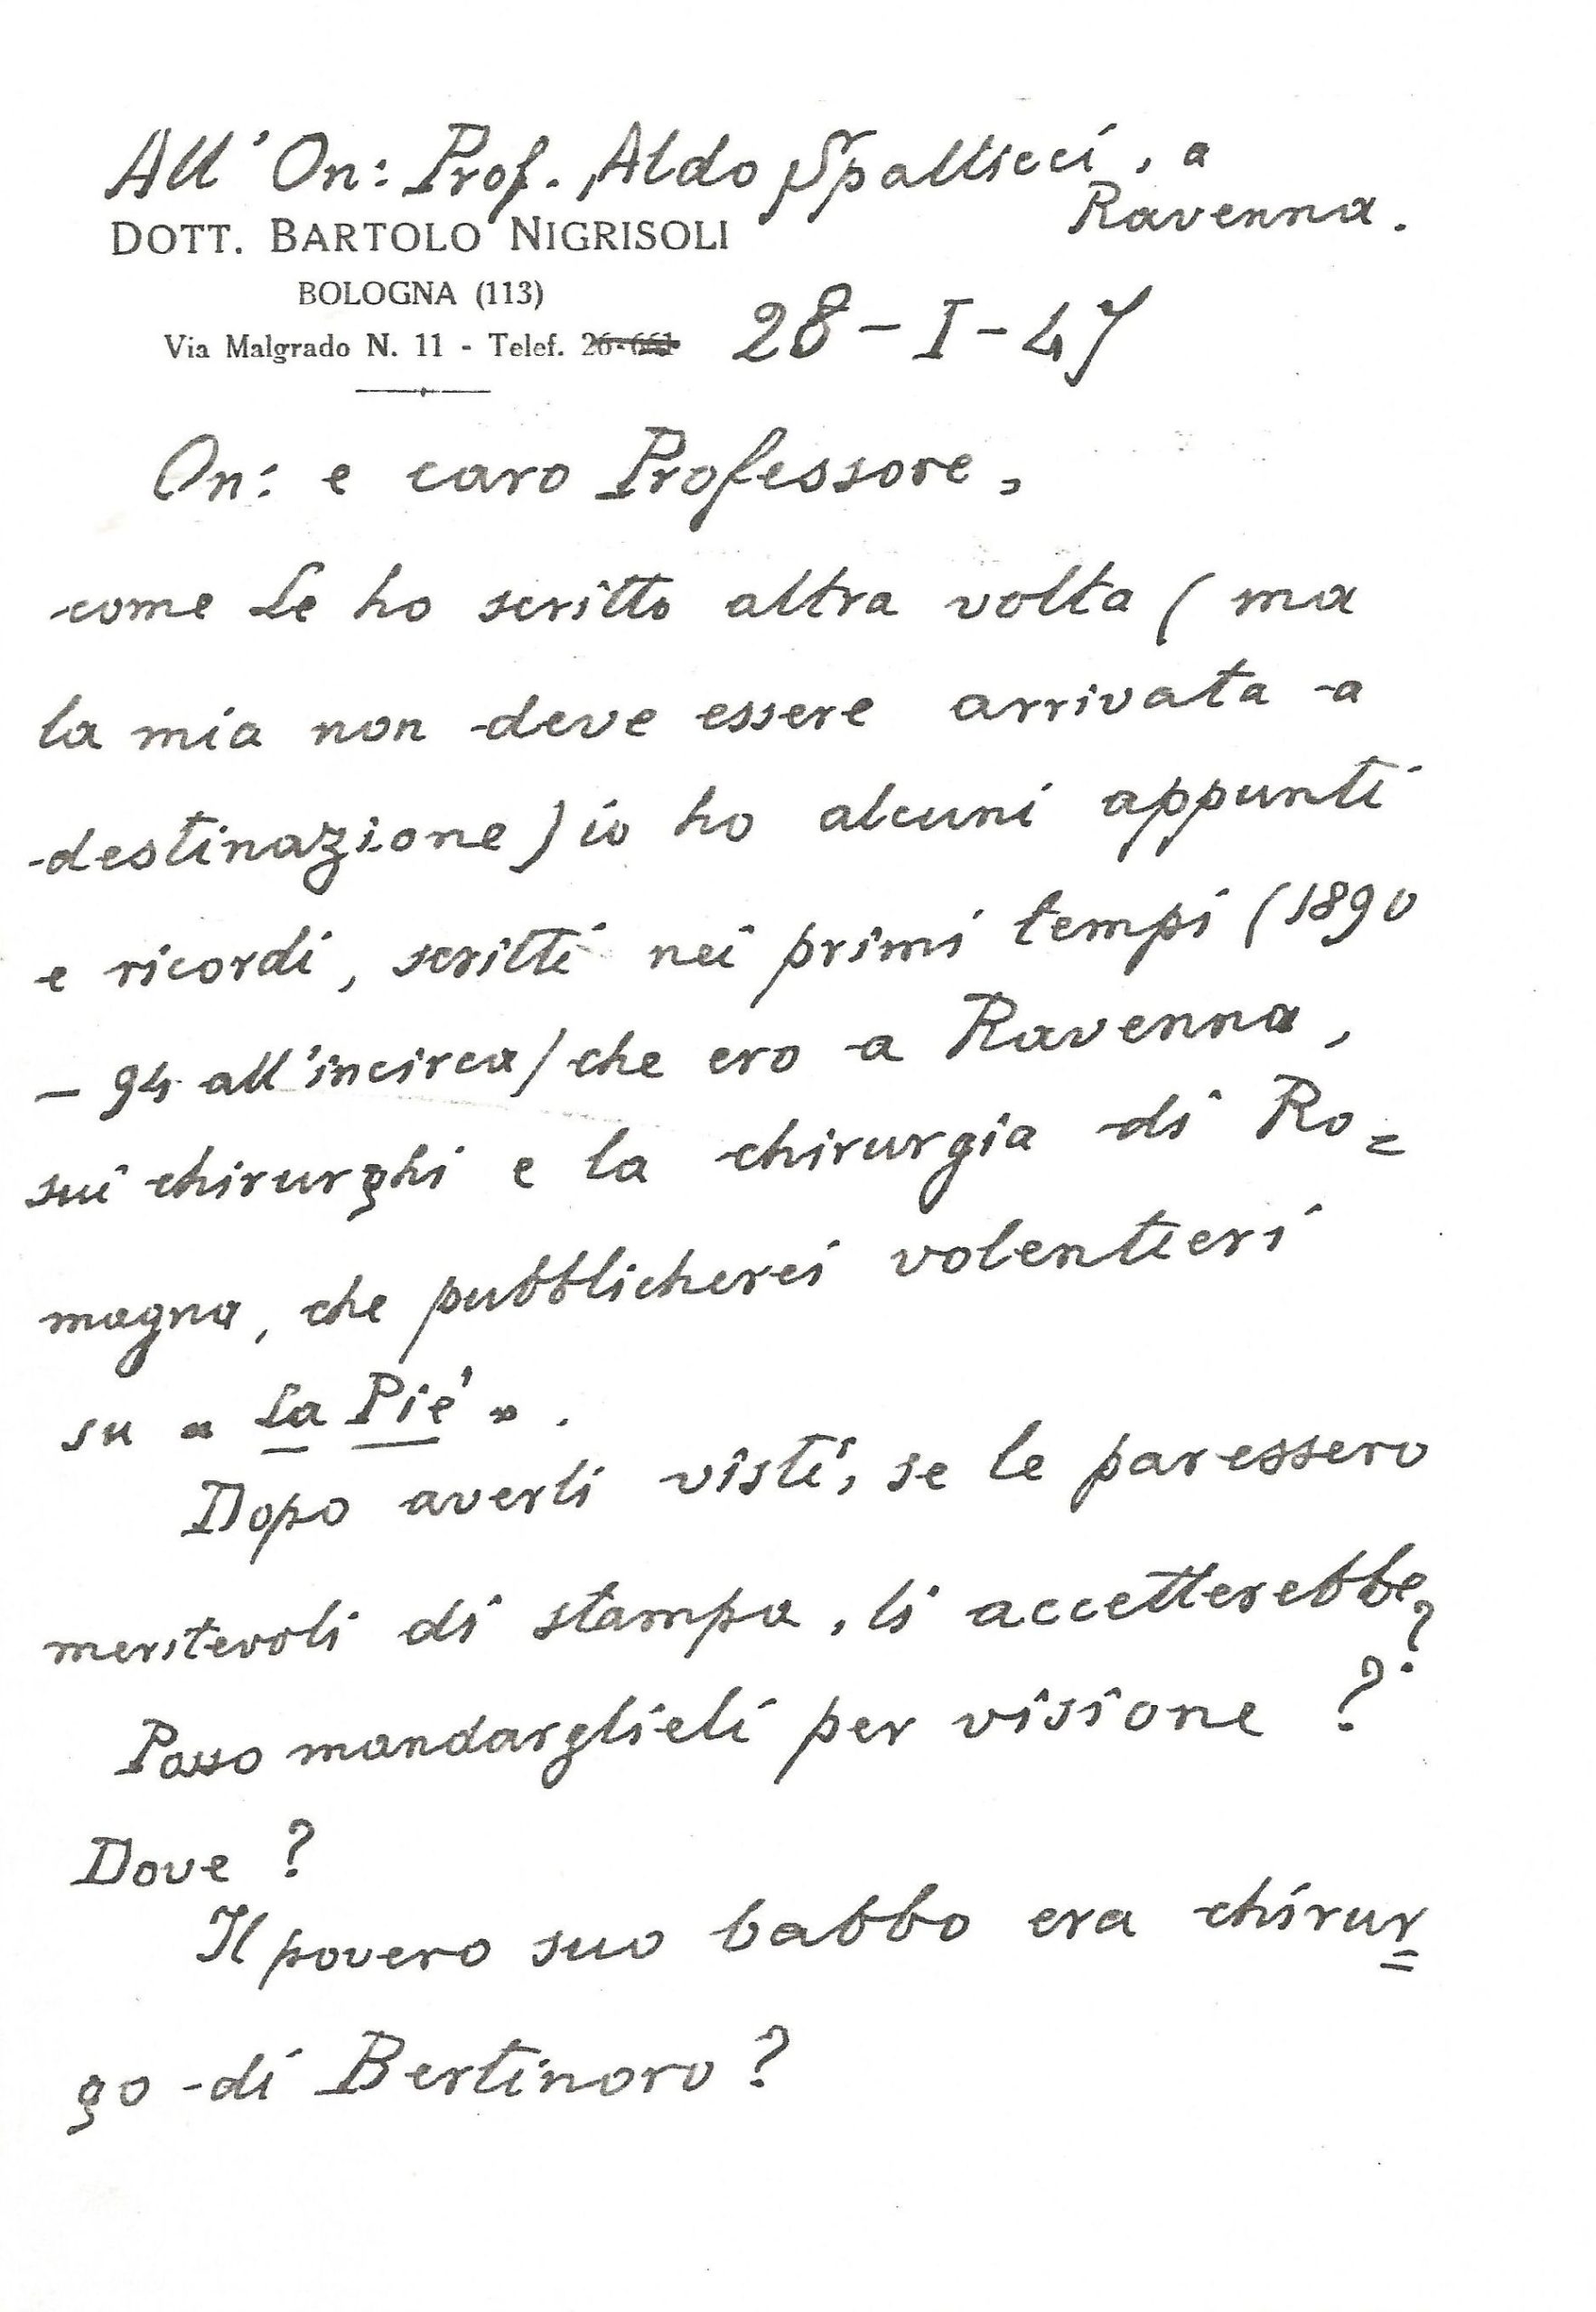 All'On: Prof. Aldo Spallicci, a
Ravenna.
DOTT. BARTOLO NIGRISOLI
BOLOGNA (113)
Via Malgrado N. 11 - Telef. 26-661
28-I-47
On: e caro Professore,
come Le ho scritto altra volta (ma
la mia non deve essere arrivata a
destinazione) io ho alcuni appunti
e ricordi, scritti nei primi tempi (1890
- 94 all'incirca) che ero a Ravenna,
sui chirurghi e la chirurgia di Ro=
magna, che pubblicherei volentieri
su « La Piè ».
Dopo averli visti, se le paressero
meritevoli di stampa, li accetterebbe?
Posso mandarglieli per visione ?
Dove ?
Il povero suo babbo era chirur=
go di Bertinoro ?